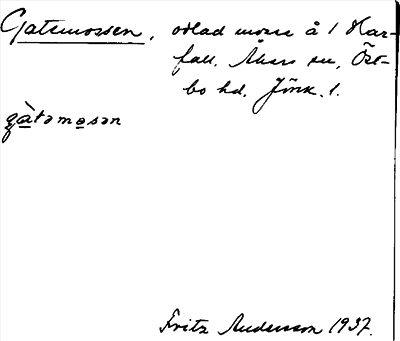 Gatemossen, odlad mosse å 1 Har-
fall. Åkers sn, Öst-
bo hd. Jönk. l.
gàtəmosən
Fritz Andersson 1937.